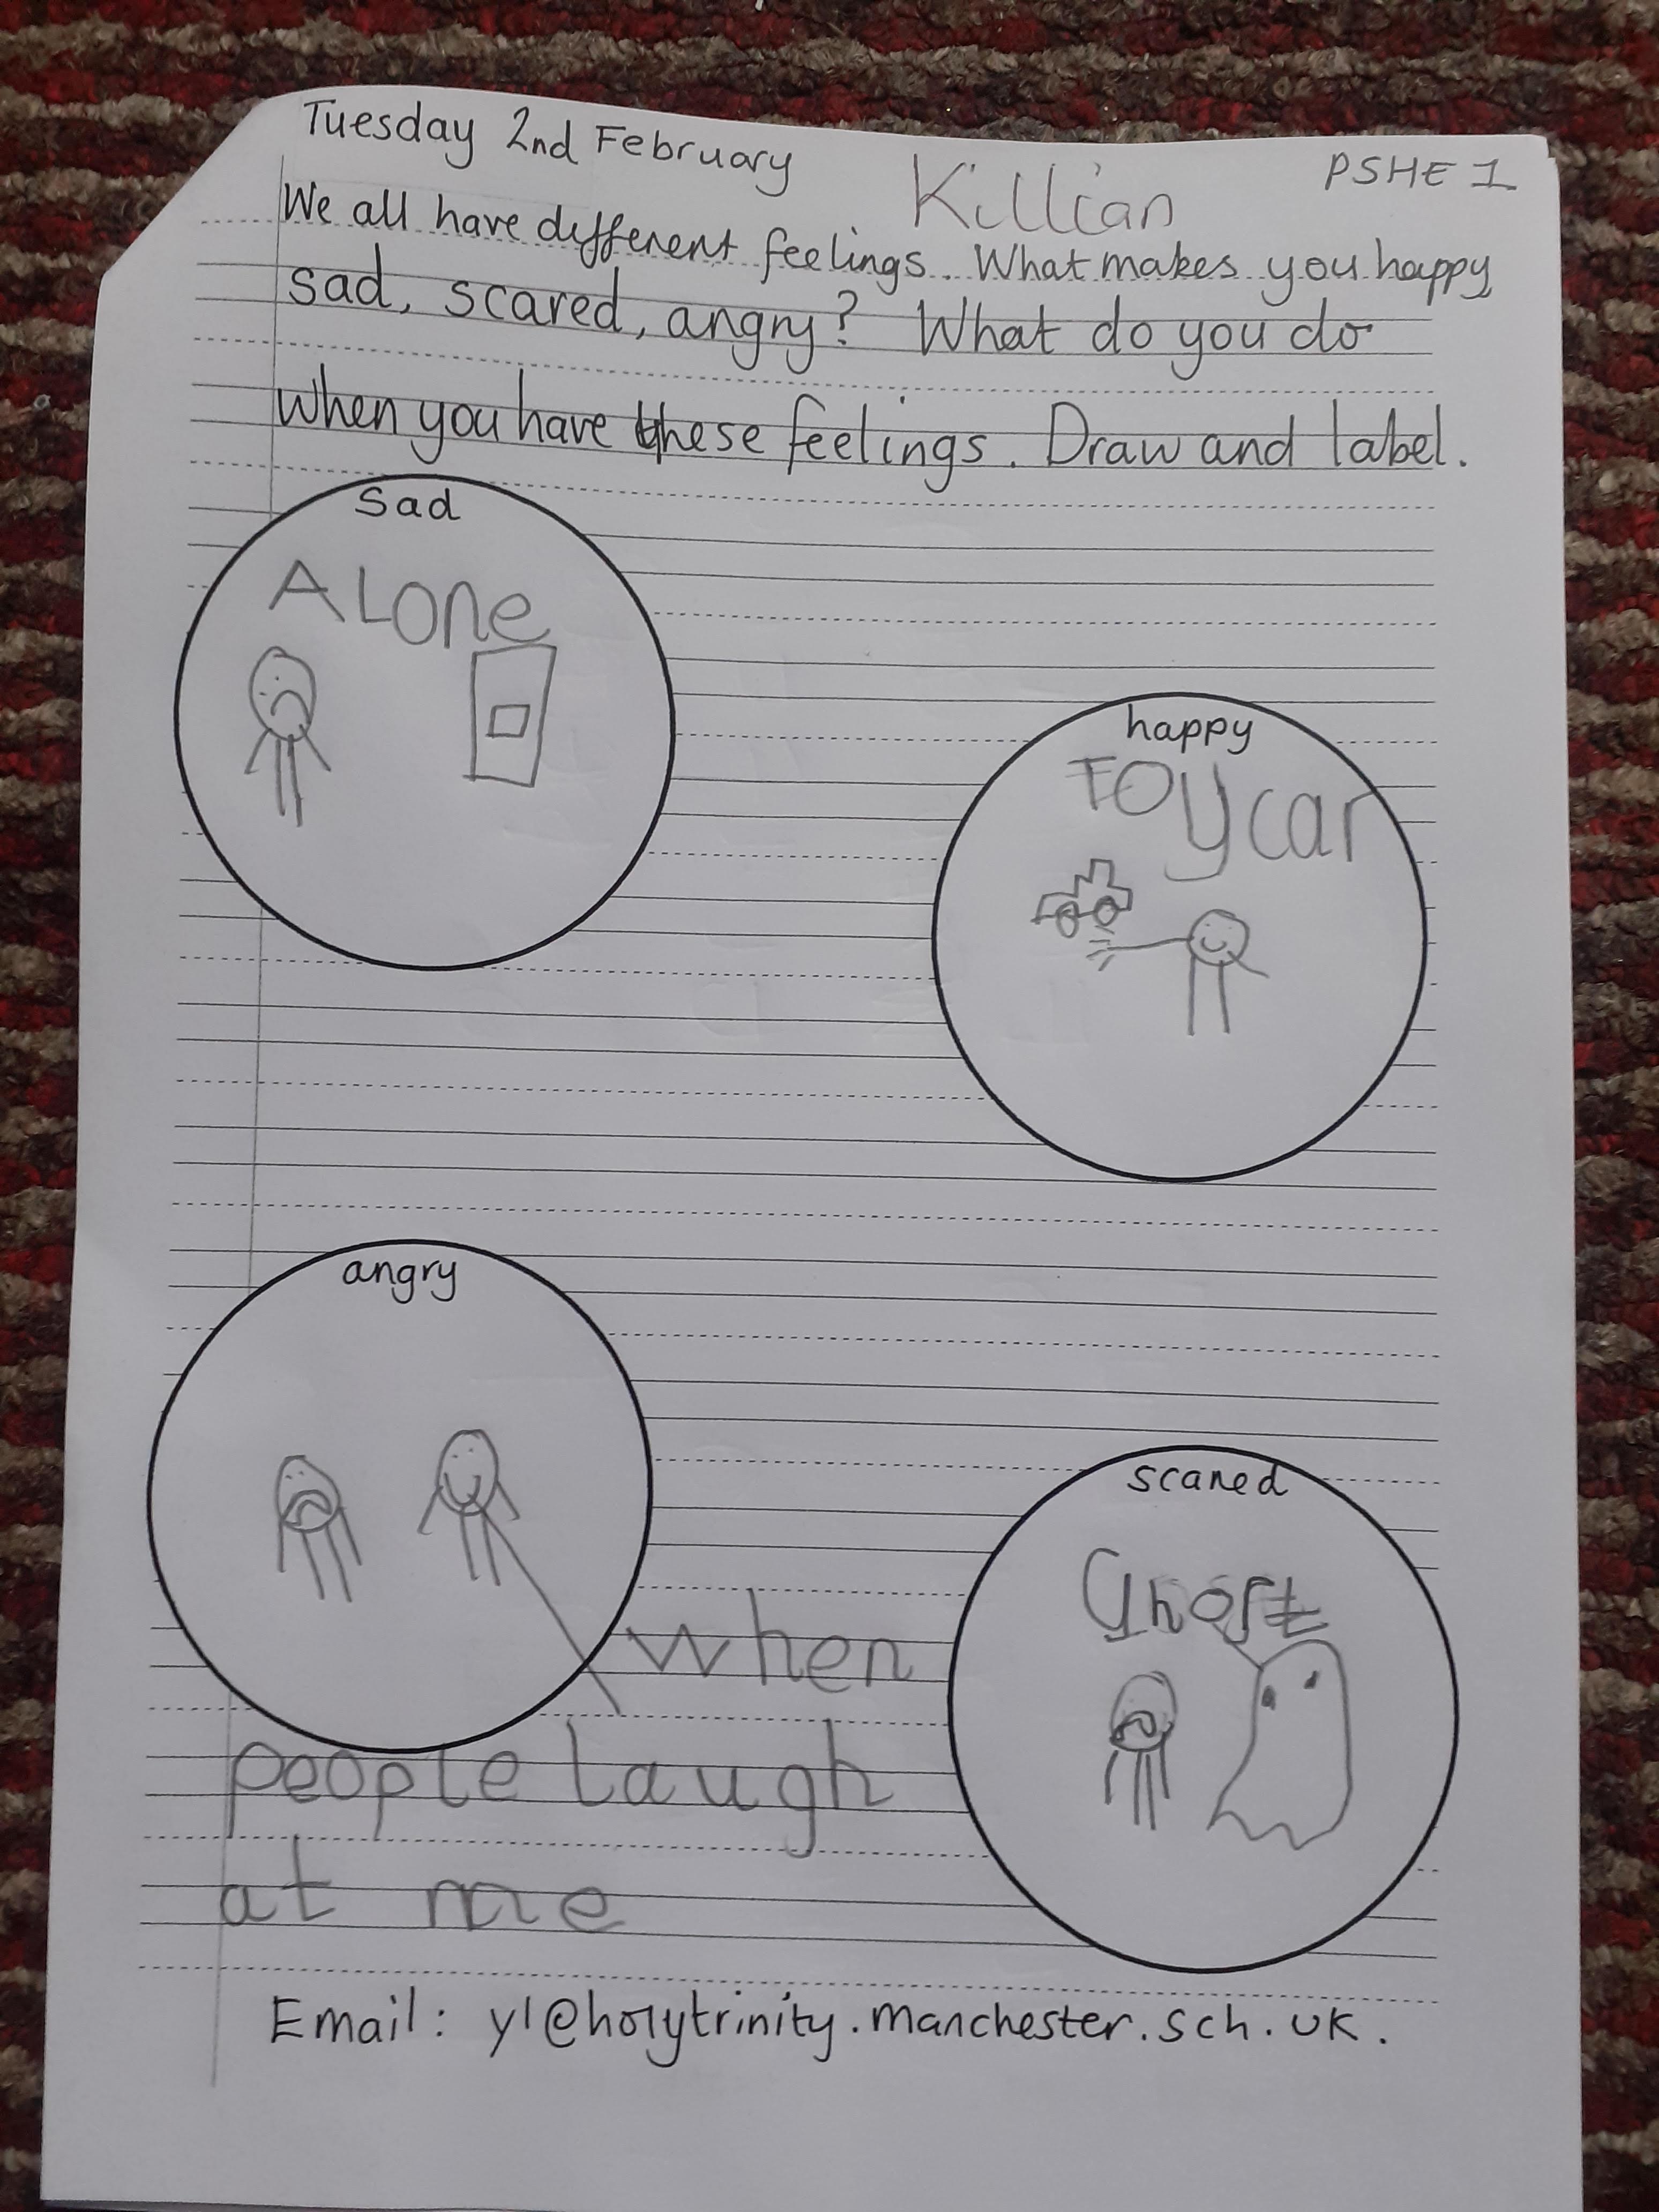 Tuesday 2nd February
Killian
PSHE 1
We all have different feelings. What makes you happy,
sad, scared, angry? What do you do
when you have these feelings. Draw and label.
Sad
ALONe
happy
TOycar
angry
when
people laugh
at me
scared
Ghost
Email: y1@holytrinity.manchester.sch.uk.